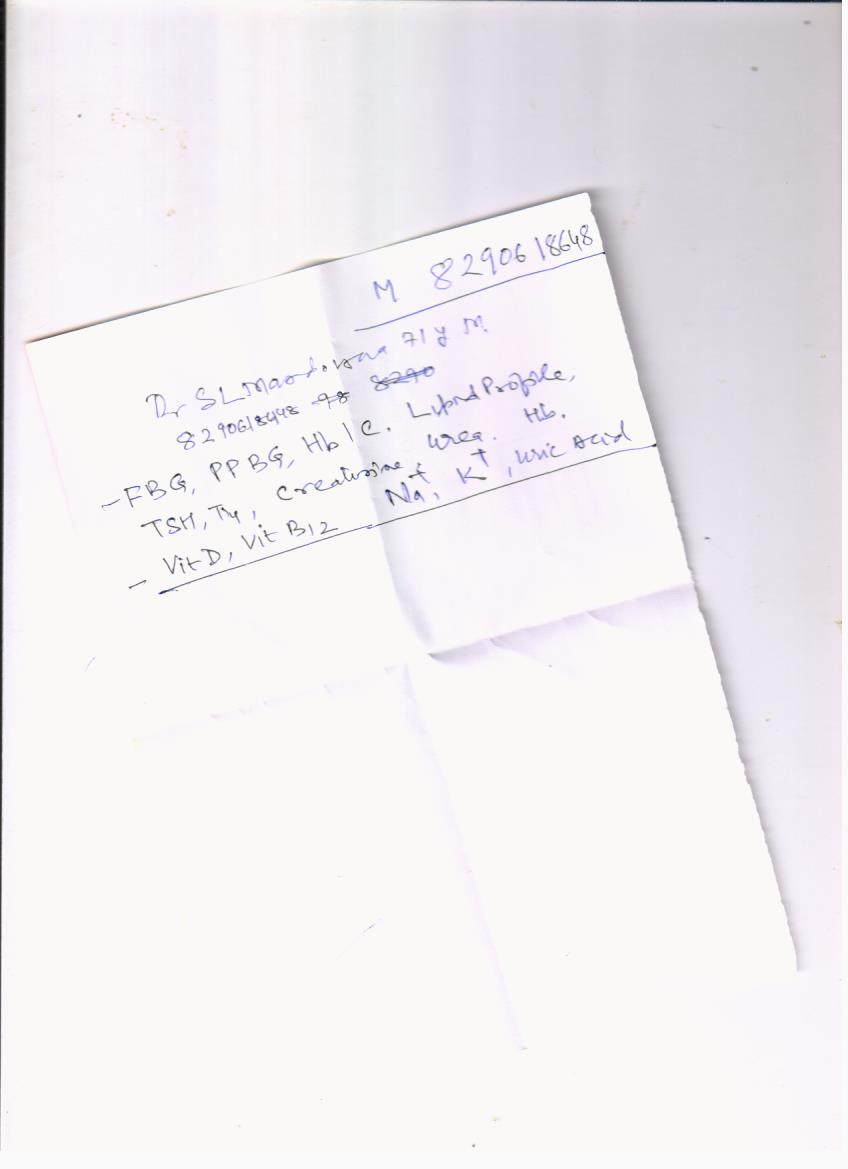 M 8290618648
Dr SL Mandowara 71 y M
8290618448 98 8290
- FBG, PPBG, Hb1C. Lipid Profile,
TSH, T4, Creatinine, Urea. Hb.
- Vit D, Vit B12 Na+, K+, Uric Acid